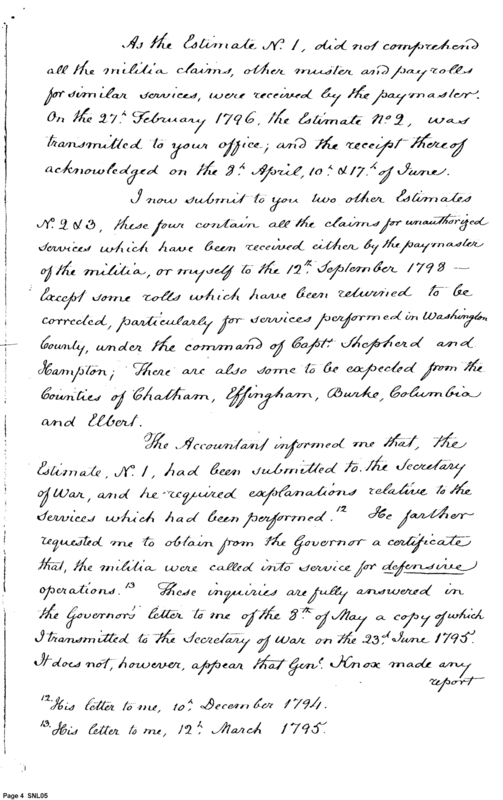 As the Estimate No. 1, did not comprehend
all the militia claims, other muster and pay rolls
for similar services, were received by the paymaster.
On the 27th February 1796, the Estimate No 2, was
transmitted to your office; and the receipt thereof
acknowledged on the 8th April, 10th & 17th of June.
I now submit to you two other Estimates
No. 2 & 3, these four contain all the claims for unauthorized
services which have been received either by the paymaster
of the militia, or myself to the 12th September 1798 —
Except some rolls which have been returned to be
corrected, particularly for services performed in Washington
County, under the command of Capts. Shepherd and
Hampton; There are also some to be expected from the
Counties of Chatham, Effingham, Burke, Columbia
and Elbert.
The Accountant informed me that, the
Estimate, No. 1, had been submitted to the Secretary
of War, and he required explanations relative to the
services which had been performed.12 He farther
requested me to obtain from the Governor a certificate
that, the militia were called into service for defensive
operations.13 These inquiries are fully answered in
the Governor's letter to me of the 8th of May a copy of which
I transmitted to the Secretary of War on the 23d June 1795.
It does not, however, appear that Genl. Knox made any
report
12. His letter to me, 10th December 1794.
13. His letter to me, 12th March 1795.
Page 4 SNL05